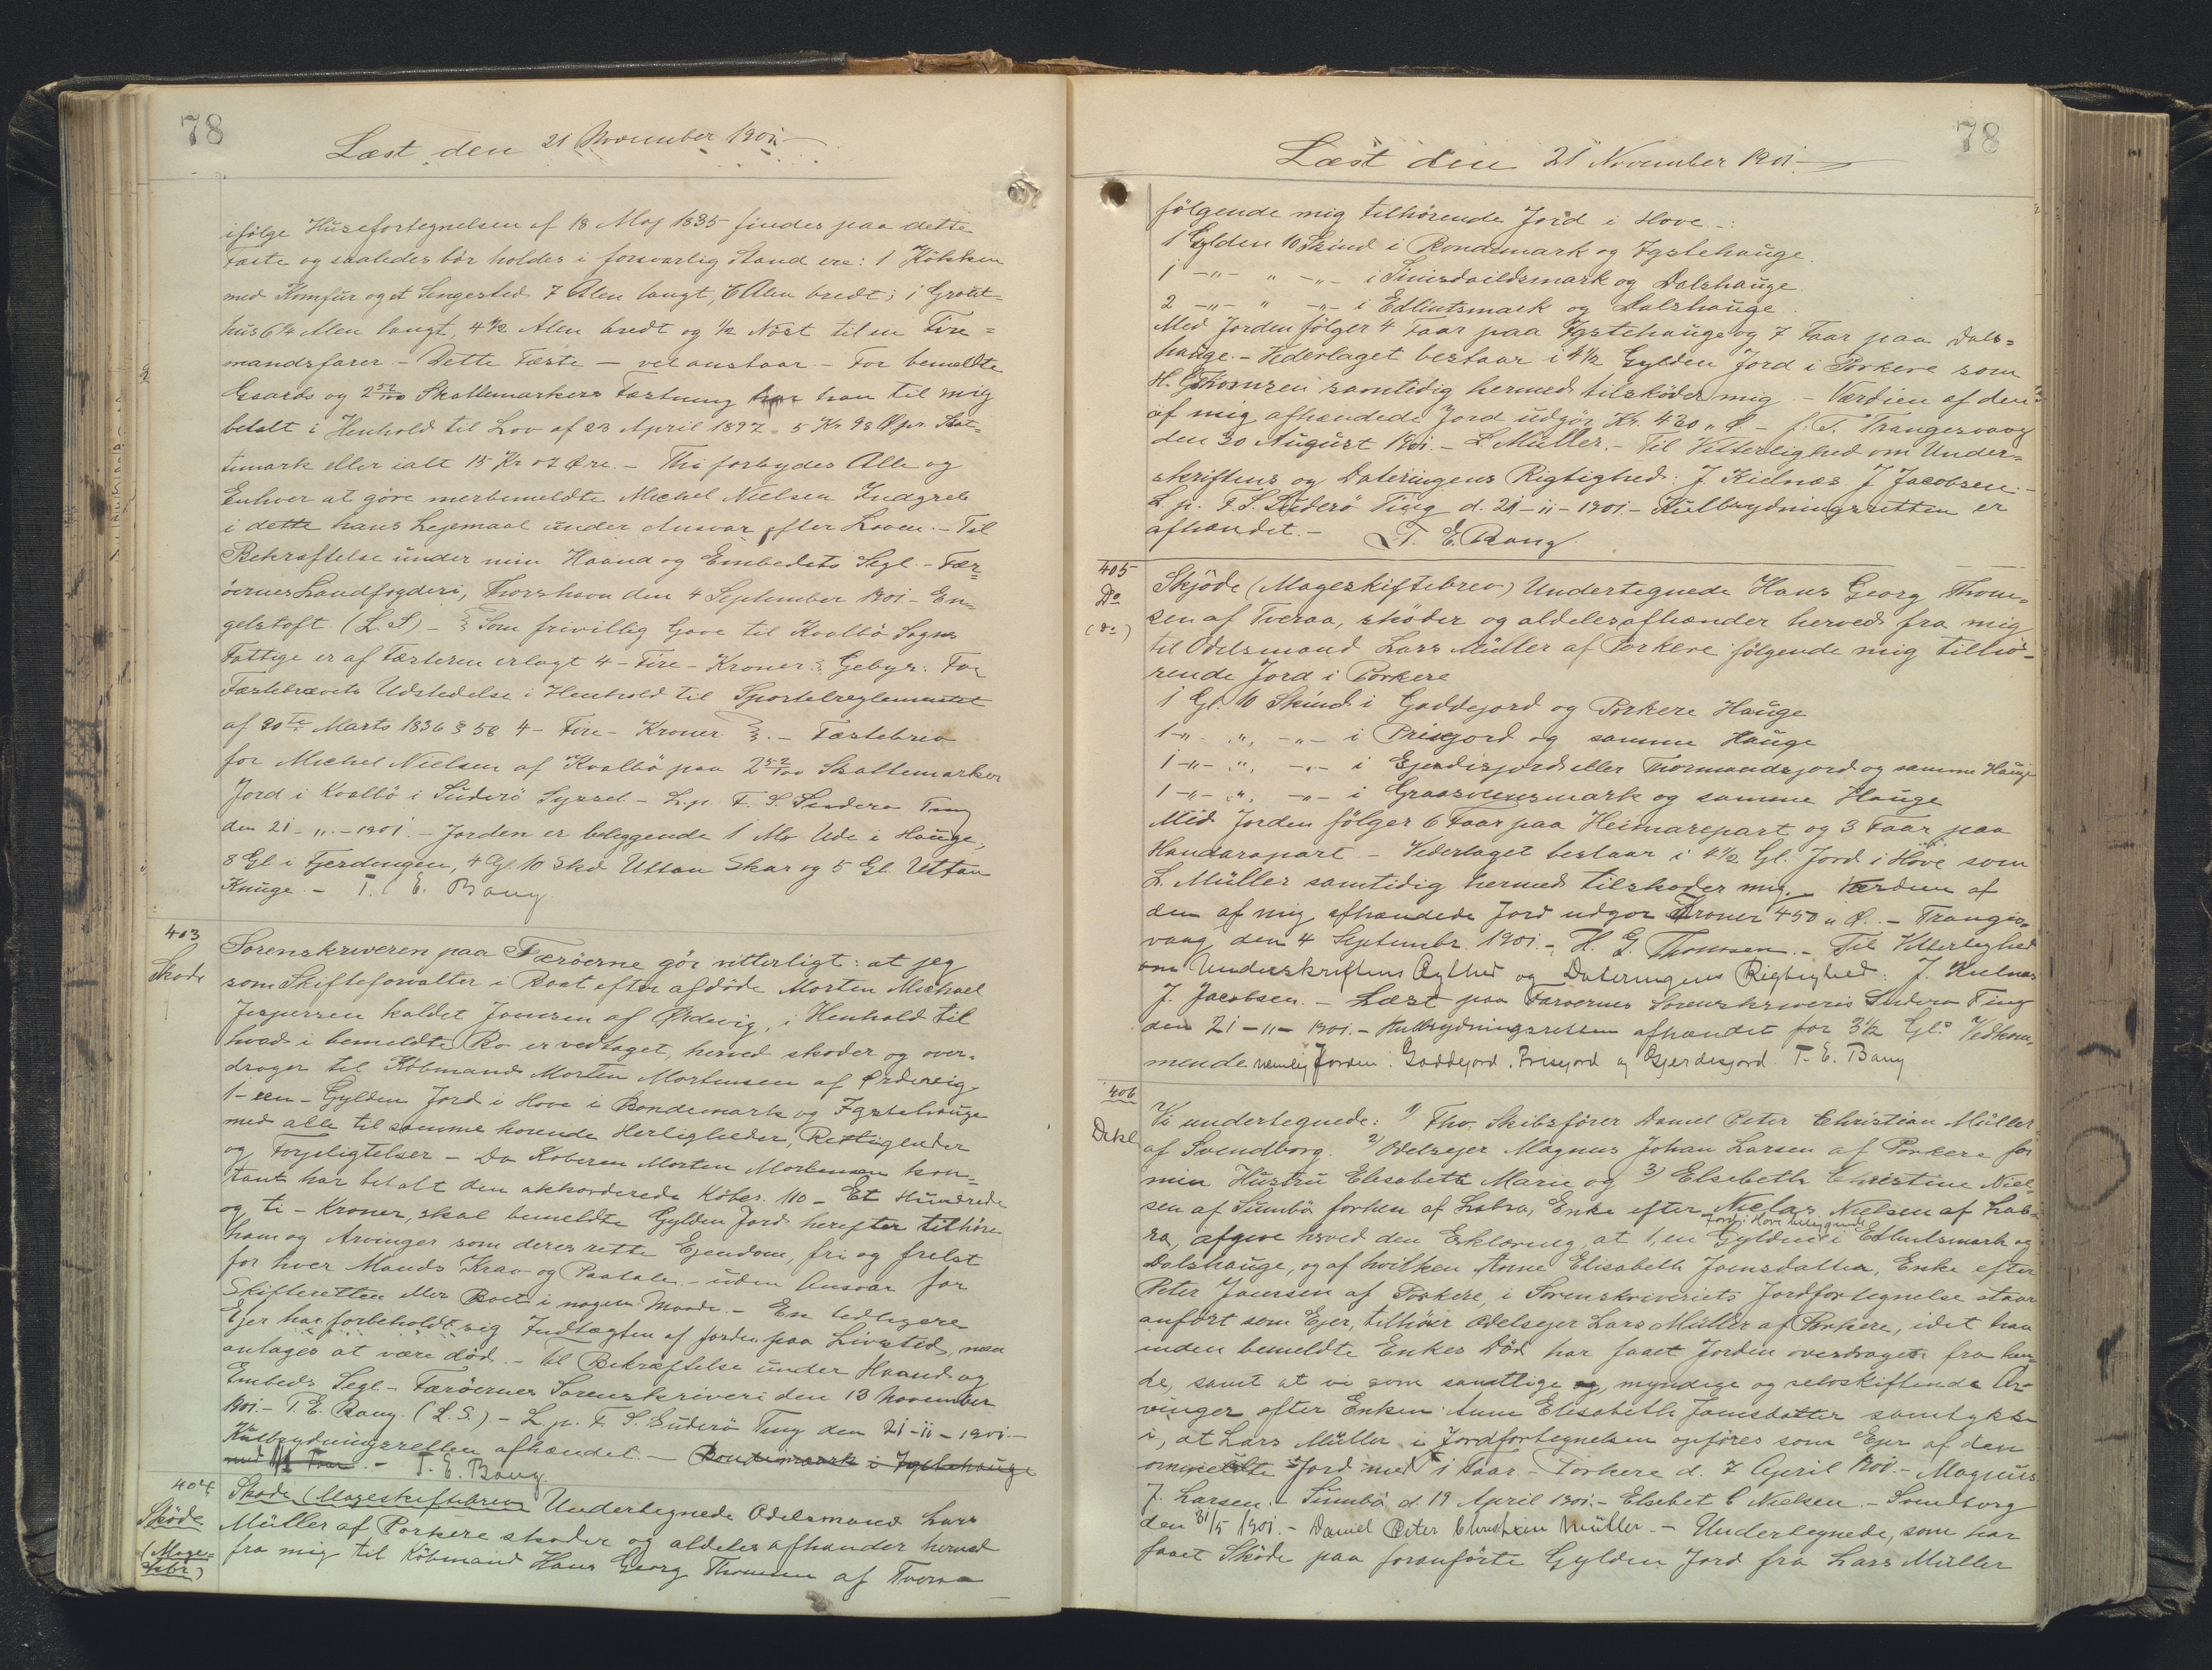 78
Læst den 21 November 1901.-
ifölge Husefortegnelsen af 18 Maj 1835 findes paa dette
Fæste og saaledes bör holdes i forsvarlig Stand ere: 1 Kökken
med Komfur og et Sengested 7 Alen langt, 6 Alen bredt; 1 Grout-
hus 6¼ Alen langt, 4½ Alen bredt og ½ Nöst til en Fire-
mandsfarer. - Dette Fæste - vel anstaar. - For bemeldte
Gaards og 2 52/100 Skattemarkers Fæstning har han til mig
betalt i Henhold til Lov af 23 April 1897 - 5 Kr 98 Ø pr. Skat-
temark eller ialt 15 Kr 07 Øre. - Thi forbydes Alle og
Enhver at göre merbemeldte Michel Nielsen Indgreb
i dette hans Lejemaal under Ansvar efter Loven. - Til
Bekræftelse under min Haand og Embedets Segl. - Fær-
öernes Landfogderi, Thorshavn den 4 September 1901. - En-
gelstoft. (L.S) - Som frivillig Gave til Kvalbö Sogns
Fattige er af Fæsteren erlagt 4 - Fire - Kroner. Gebyr: For
Fæstebrevets Udstedelse i Henhold til Sportelreglementet
af 30te Marts 1836 § 58 4 - Fire - Kroner. - Fæstebrev
for Michel Nielsen af Kvalbö paa 2 52/100 Skattemarker
Jord i Kvalbö i Süderö Syssel. - L.p. F. S. Suderø Ting
den 21 - 11 - 1901. - Jorden er beliggende 1 Mk Ude i Hauge,
8 Gl i Fjerdingen, 4 Gl. 10 Skd Uttan Skar og 5 Gl. Uttan
Knuge. - T. E. Bang.
403
Skøde
Sorenskriveren paa Færöerne gör vitterligt: at jeg
som Skifteforvalter i Boet efter afdöde Morten Michael
Jespersen kaldet Joensen af Ørdevig, i Henhold til
hvad i bemeldte Bo er vedtaget, herved skøder og over-
drager til Köbmand Morten Mortensen af Ørdevig
1 - een - Gylden Jord i Hove i Bondemark og Igstehauge
med alle til samme hørende Herligheder, Rettigheder
og Forpligtelser - Da Køberen Morten Mortensen kon-
tant har betalt den akkorderede Købes. 110 - Et Hundrede
og ti - Kroner, skal bemeldte Gylden Jord herefter tilhöre
ham og Arvinger som deres rette Ejendom, fri og frelst
for hver Mands Krav og Paatale. - uden Ansvar for
Skifteretten eller Boet i nogen Maade. - En tidligere
Ejer har forbeholdt sig Indtægten af Jorden paa Livstid, men
antages at være död. - Til Bekræftelse under Haand og
Embeds Segl - Færöernes Sorenskriveri den 13 November
1901. - T. E. Bang. (L.S.) - L.p. F. S. Suderö Ting den 21-11-1901. -
Kulbrydningsretten afhændet. - Bondemark i Igstehauge
med Faar. - T. E. Bang.
404
Skøde
(Mage-
skbr.)
Skøde (Mageskiftebrev) Undertegnede Odelsmand Lars
Müller af Porkere skøder og aldeles afhænder herved
fra mig til Köbmand Hans Georg Thomsen af Tveraa
78
Læst den 21 November 1901. -
fölgende mig tilhörende Jord i Hove. -:
1 Gylden 10 Skind i Bondemark og Igstehauge.
1 -"- " -"- i Sinisdaildsmark og Dalshauge.
2 -"- " -"- i Edlintsmark og Dalshauge.
Med Jorden fölger 4 Faar paa Igstehauge og 7 Faar paa Dals-
hauge. - Vederlaget bestaar i 4½ Gylden Jord i Porkere som
H. G. Thomsen samtidig hermed tilsköder mig. - Værdien af den
af mig afhændede Jord udgör Kr. 430 " Ø - f. T. Trangesvaag
den 30 August 1901. - L Müller. - Til Vitterlighed om Under-
skriftens og Dateringens Rigtighed: J Kielnæs J Jacobsen. -
L. p. F. S. Suderö Ting d. 21-11-1901. - Kulbrydningsretten er
afhændet. - T. E. Bang.
405
Do
(do)
Skjöde (Mageskiftebrev) Undertegnede Hans Georg Thom-
sen af Tveraa, skøder og aldeles afhænder herved fra mig
til Odelsmand Lars Müller af Porkere fölgende mig tilhö-
rende Jord i Porkere
1 Gl. 10 Skind i Gaddejord og Porkere Hauge
1 -"- " -"- i Prisejord og samme Hauge
1 -"- " -"- i Gjerdisjord eller Thormandsjord og samme Hauge
1 -"- " -"- i Graasveinsmark og samme Hauge
Med Jorden fölger 6 Faar paa Heimarepart og 3 Faar paa
Handarapart - Vederlaget bestaar i 4½ Gl. Jord i Hove som
L. Müller samtidig hermed tilskøder mig. - Værdien af
den af mig afhændede Jord udgør Kroner 450 " Ø. - Tranges-
vaag den 4 Septembr. 1901. - H. G. Thomsen. - Til Vitterlighed
om Underskriftens Ægthed og Dateringens Rigtighed: J. Kielnæs
J. Jacobsen. - Læst paa Færøernes Sorenskriveris Suderø Ting
den 21-11-1901. - Kulbrydningsretten afhændet for 3½ Gl. Vedkom-
mende nemlig Jorden: Gaddejord, Prisejord og Gjerdesjord. T. E. Bang
406
Dekl
Vi undertegnede: 1) Fhv. Skibsfører Daniel Peter Christian Müller
af Svendborg. 2) Odelsejer Magnus Johan Larsen af Porkere for
min Hustru Elisabeth Marie og 3) Elsebeth Christine Niel-
sen af Sumbö forhen af Labra, Enke efter Niclas Nielsen af Lab-
ra, afgive herved den Erklæring, at 1, en Gylden Jord i Hove beliggende i Edlintsmark og
Dalshauge, og af hvilken Anne Elisabeth Joensdatter, Enke efter
Peter Joensen af Porkere, i Sorenskriveriets Jordfortegnelse staar
anfört som Ejer, tilhörer Odelsejer Lars Müller af Porkere, idet han
inden bemeldte Enkes Död har faaet Jorden overdraget fra hen-
de, samt at vi som samtlige og, myndige og selvskiftende Ar-
vinger efter Enken Anne Elisabeth Joensdatter samtykke
i, at Lars Müller i Jordfortegnelsen opföres som Ejer af den
ommeldte Jord med 1 Faar - Porkere d. 7 April 1901. - Magnus
J. Larsen. - Sumbö d. 19 April 1901. - Elsebet C Nielsen. - Svendborg
den 31/5 1901. - Daniel Peter Christian Müller. - Undertegnede, som har
faaet Skøde paa foranförte Gylden Jord fra Lars Müller